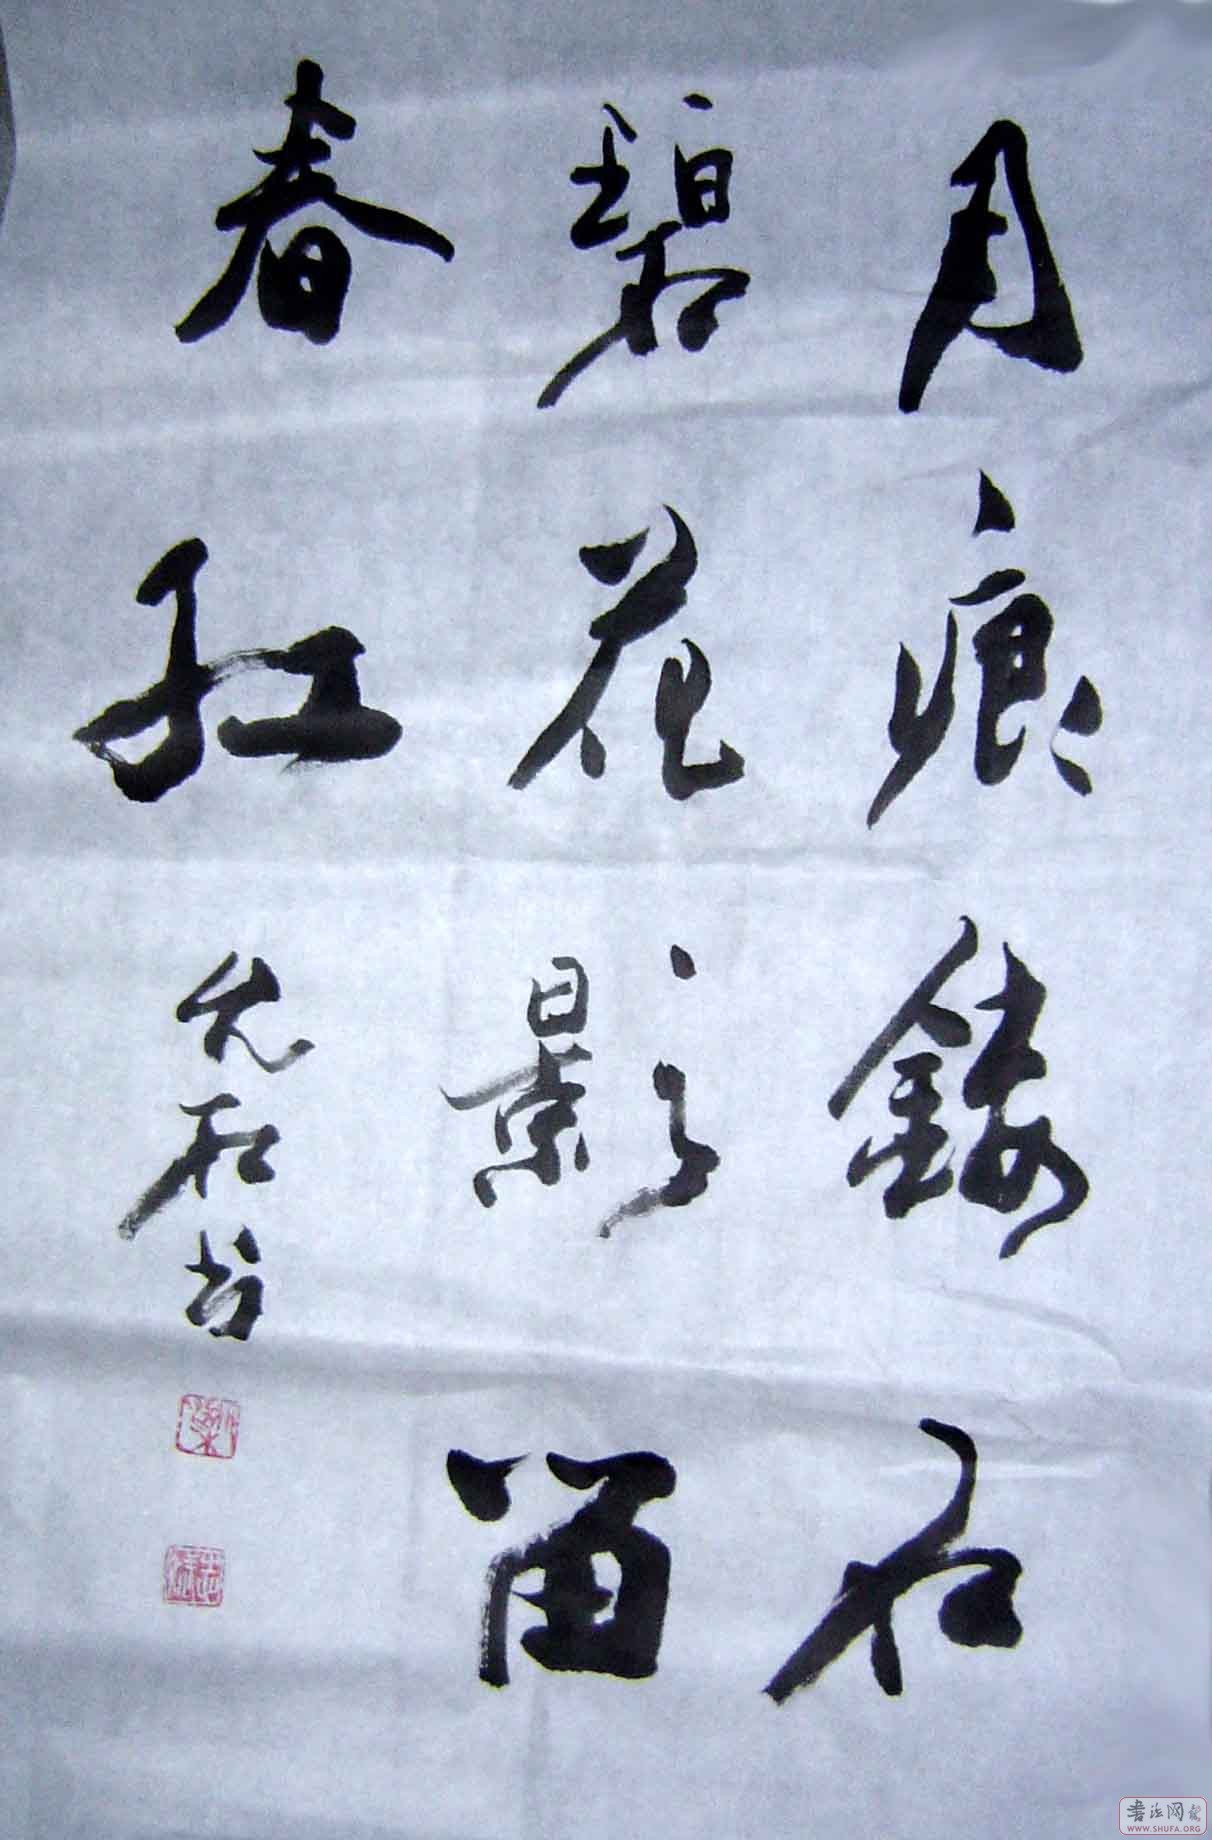 月痕鏤石
碧花影留
春红
允石书
書法网
WWW.SHUFA.ORG